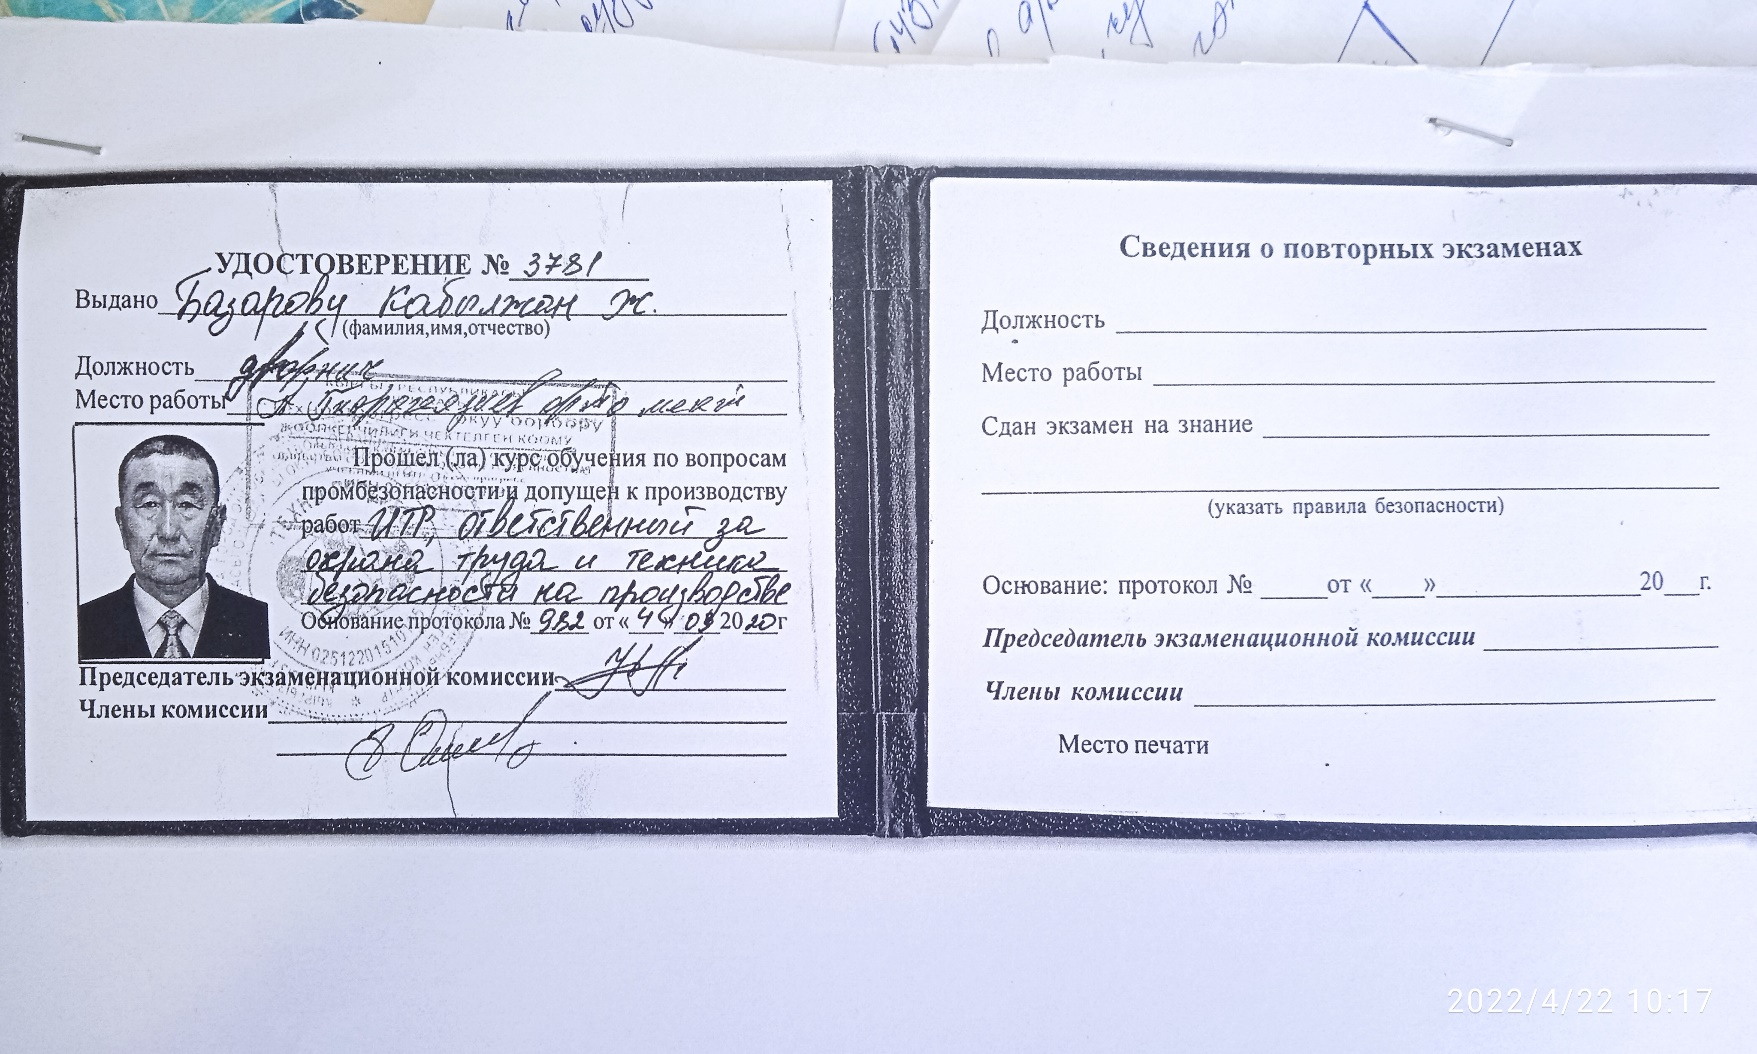 УДОСТОВЕРЕНИЕ № 3781
Выдано Базарову Кабылжан Ж.
(фамилия,имя,отчество)
Должность дворник
Место работы орто мект
ОКУУ БӨЛҮМҮ
Прошел (ла) курс обучения по вопросам
промбезопасности и допущен к производству
работ ИТР, ответственный за
охрана труда и техника
безопасности на производстве
Основание протокола № 982 от « 4 » 03 2020г
ИНН 02512201510
Председатель экзаменационной комиссии
Члены комиссии
Сведения о повторных экзаменах
Должность
Место работы
Сдан экзамен на знание
(указать правила безопасности)
Основание: протокол № от « » 20 г.
Председатель экзаменационной комиссии
Члены комиссии
Место печати
2022/4/22 10:17